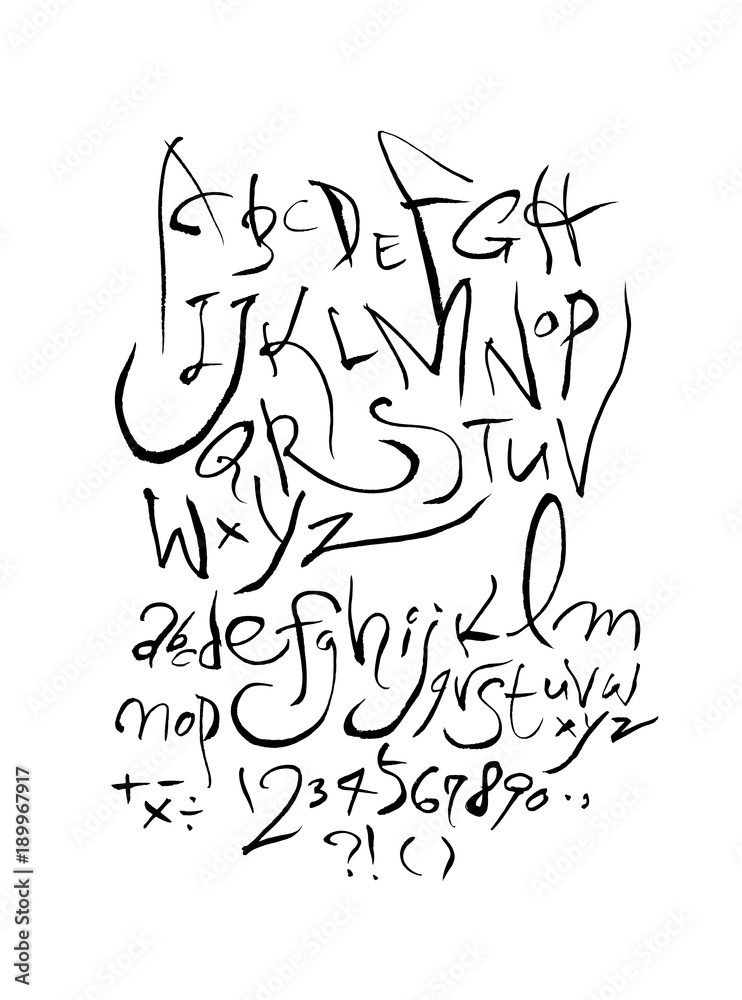 ABCDEFGH
IJKLMNOP
QRSTUV
WXYZ
abcdefghijklm
nopqrstuvw
xyz
+-×÷ 1234567890.,
?!()
Adobe Stock | #189967917